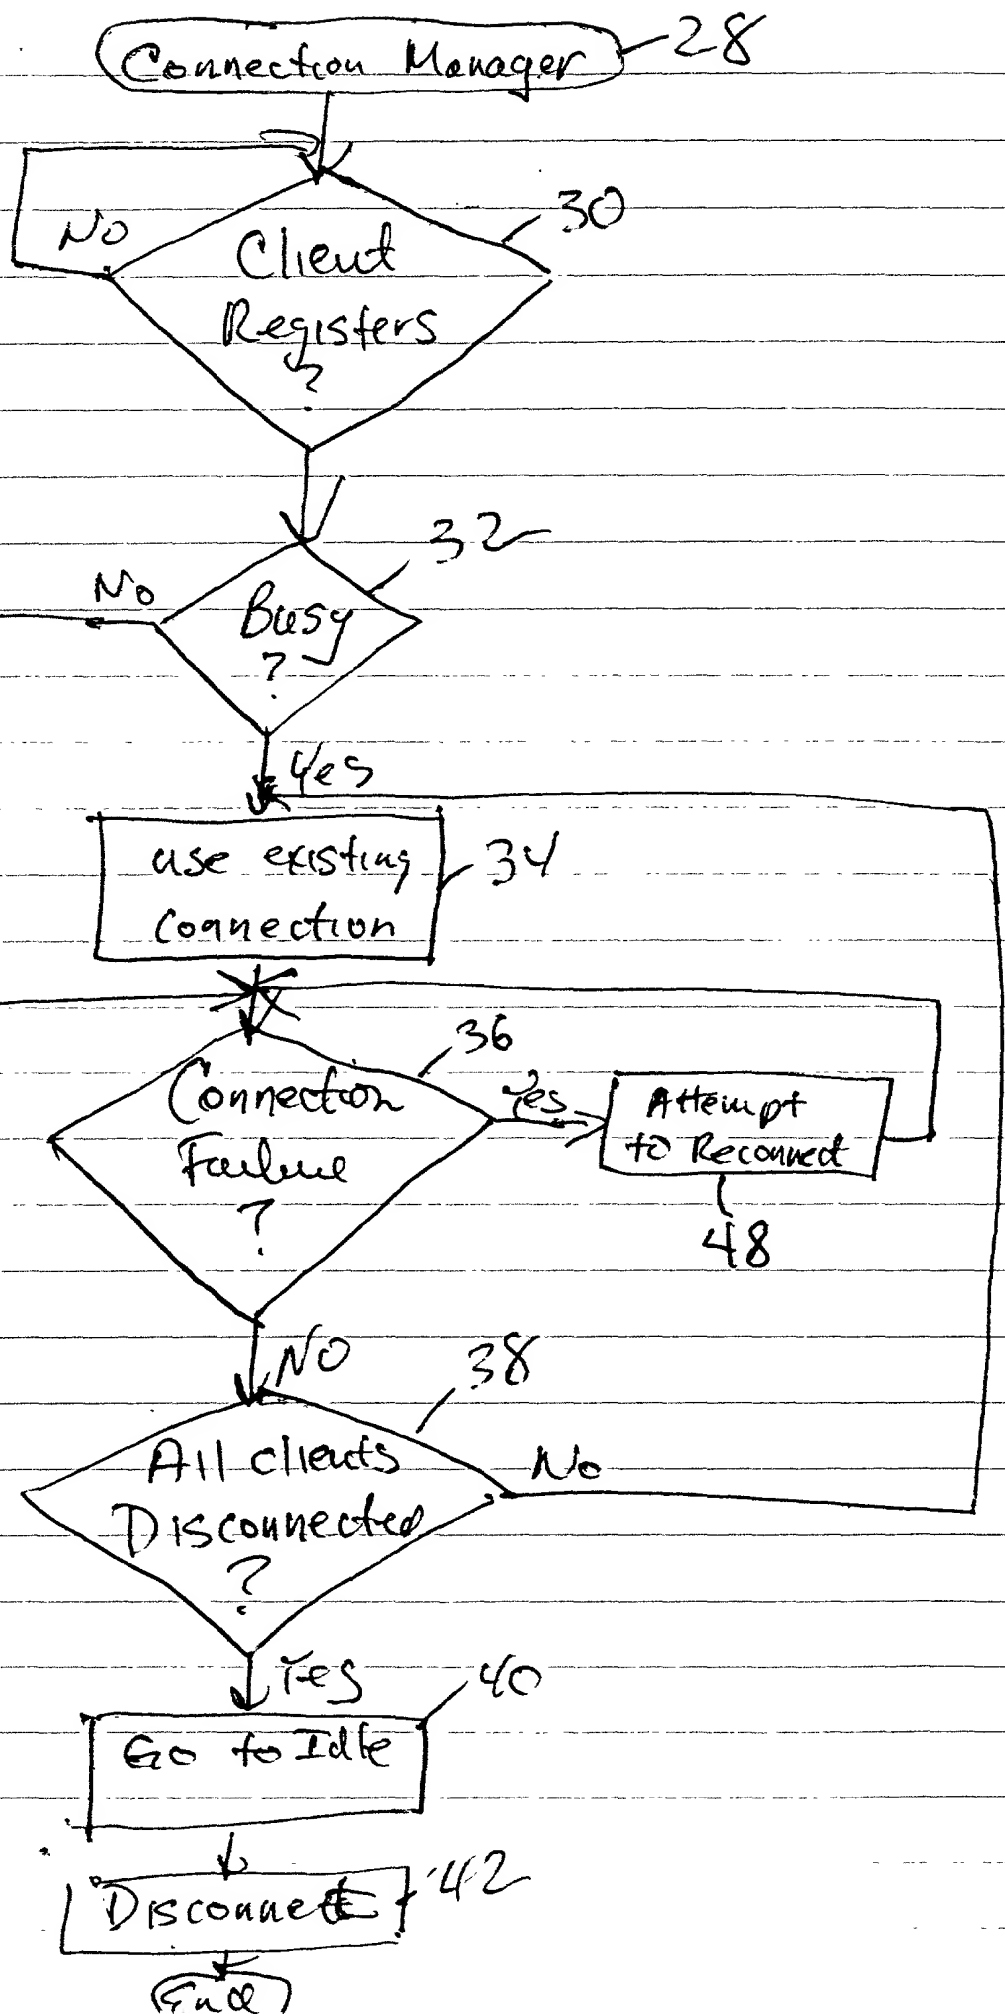 Connection Manager 28
30
No
Client
Registers
?
32
No
Busy
?
Yes
use existing
connection
34
36
Connection
Failure
?
Yes
Attempt
to Reconnect
48
NO
38
All clients
Disconnected
?
No
Yes
40
Go to Idle
Disconnect
42
End